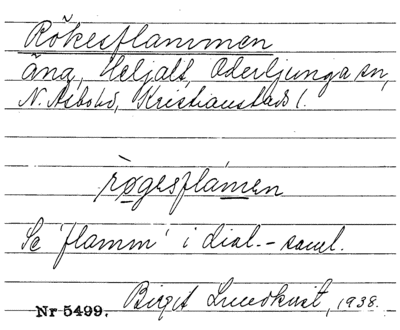 Rökesflammen
äng, Heljalt, Oderljunga sn,
N. Åsbo hd, Kristianstads l.
røgesflamen
Se 'flamm' i dial.-saml.
Nr 5499. Birgit Lundkvist, 1938.